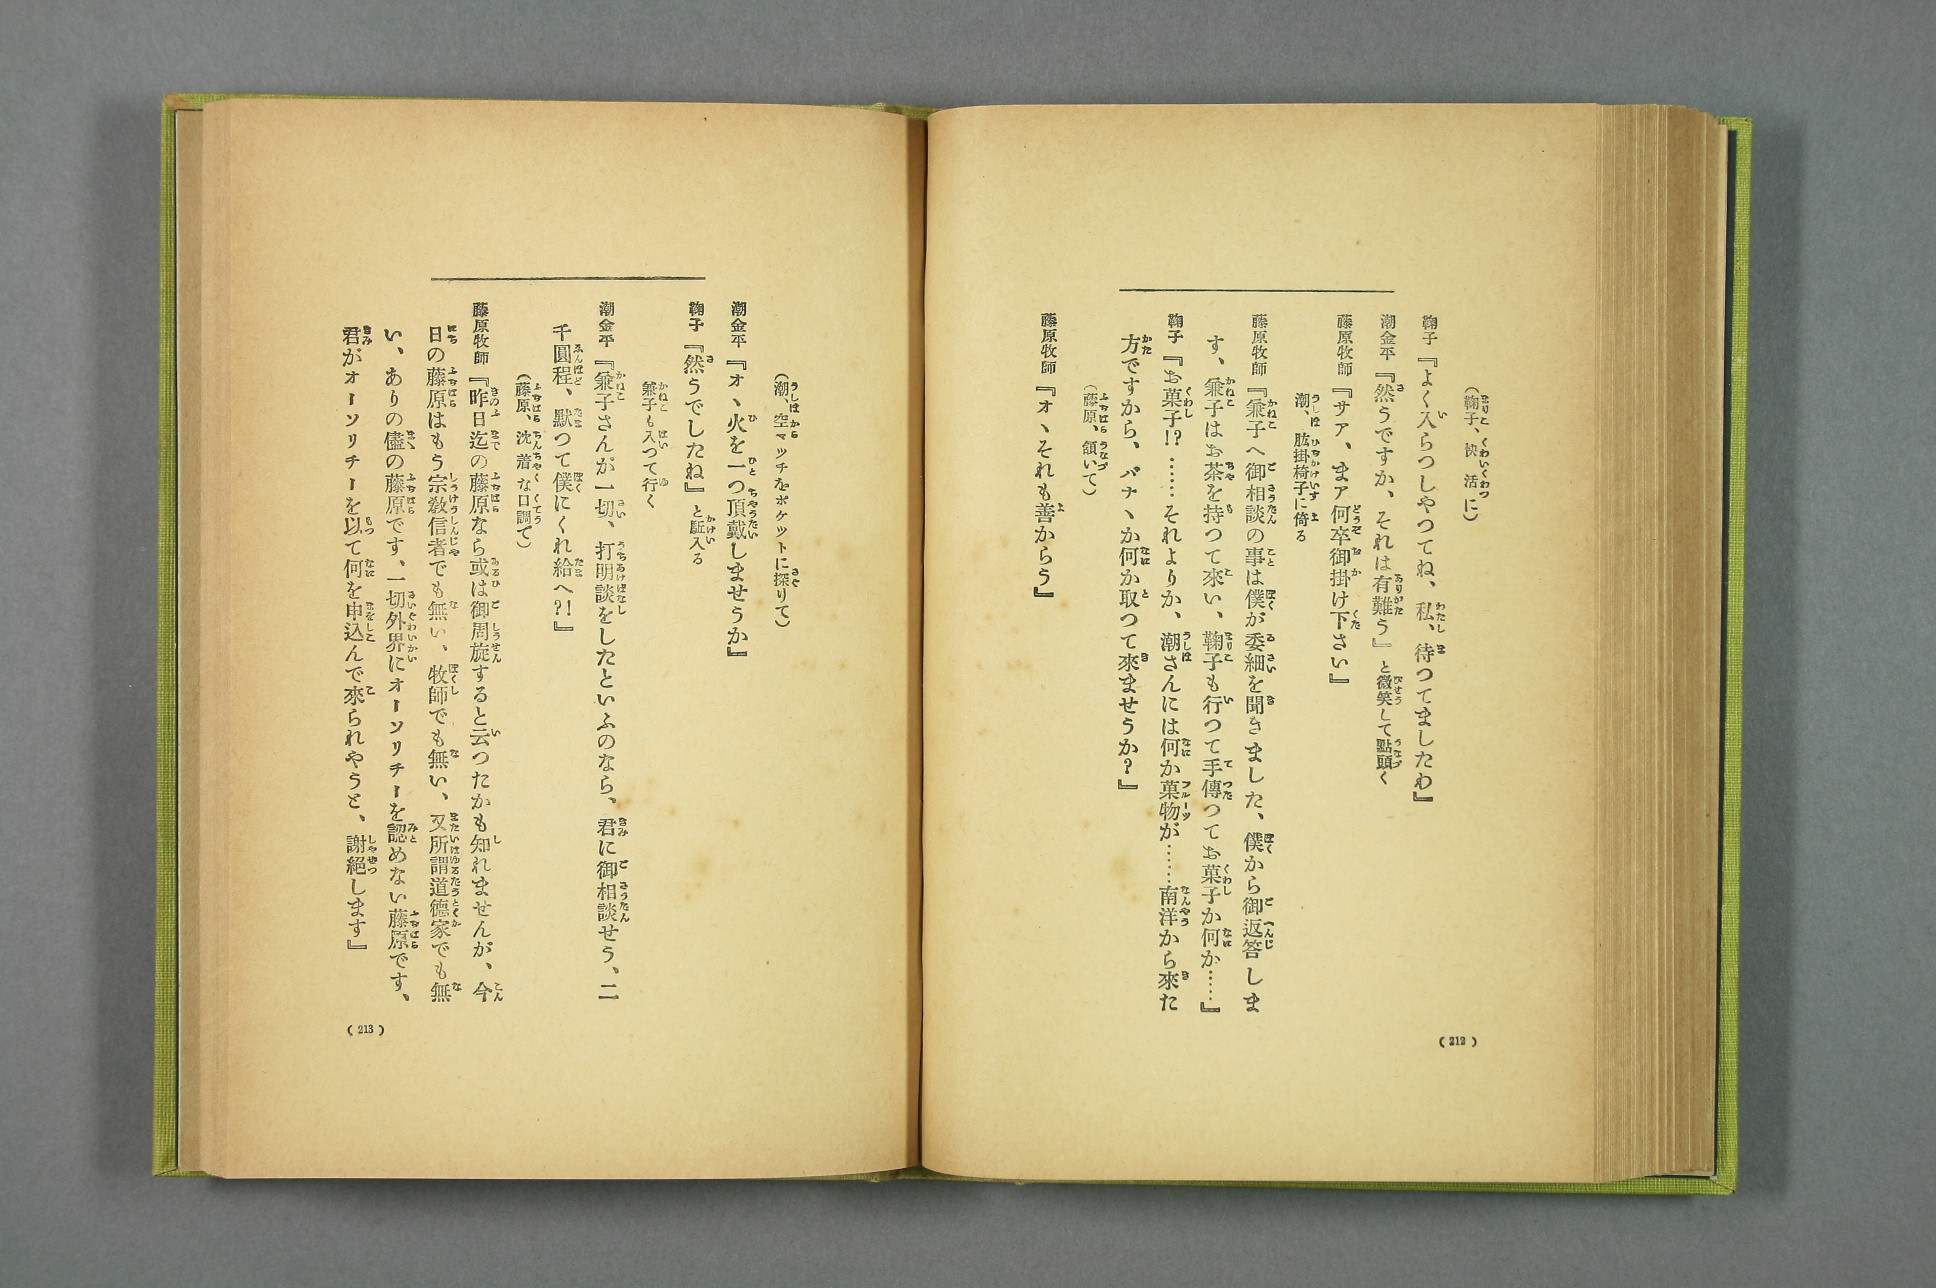 (鞠子、快活に)
鞠子『よく入らつしやつてね、私、待つてましたわ』
潮金平『然うですか、それは有難う』と微笑して點頭く
藤原牧師『サア、まア何卒御掛け下さい』
潮、肱掛椅子に倚る
藤原牧師『兼子へ御相談の事は僕が委細を聞きました、僕から御返答しま
す、兼子はお茶を持つて來い、鞠子も行つて手傳つてお菓子か何か……』
鞠子『お菓子!?……それよりか、潮さんには何か菓物が……南洋から來た
方ですから、バナヽか何か取つて來ませうか?』
(藤原、頷いて)
藤原牧師『オヽそれも善からう』
(212)
(潮、空マッチをポケットに探りて)
潮金平『オヽ火を一つ頂戴しませうか』
鞠子『然うでしたね』と駈入る
兼子も入つて行く
潮金平『兼子さんが一切、打明談をしたといふのなら、君に御相談せう、二
千圓程、默つて僕にくれ給へ?!』
(藤原、沈着な口調で)
藤原牧師『昨日迄の藤原なら或は御周旋すると云つたかも知れませんが、今
日の藤原はもう宗敎信者でも無い、牧師でも無い、又所謂道德家でも無
い、ありの儘の藤原です、一切外界にオーソリチーを認めない藤原です、
君がオーソリチーを以て何を申込んで來られやうと、謝絕します』
(213)